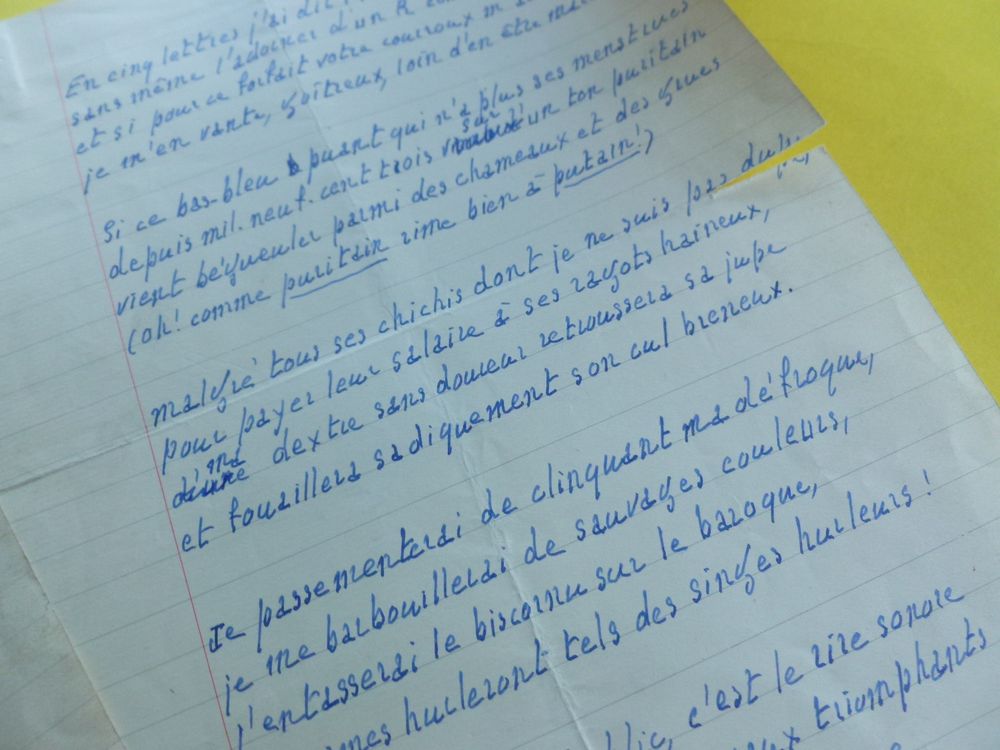 En cinq lettres j'ai dit
sans même l'adoucir d'un R
et si pour ce forfait votre courroux m
je m'en vante, goîtreux, loin d'en être
Si ce bas-bleu puant qui n'a plus ses menstrues
depuis mil. neuf. cent trois sur un ton puritain
vient bégueuler parmi des chameaux et des grues
(oh! comme puritain rime bien à putain!)
malgré tous ses chichis dont je ne suis pas dupe,
pour payer leur salaire à ses ragots haineux,
ma dextre sans douceur retroussera sa jupe
et fouaillera sadiquement son cul breneux.
Je passementerai de clinquant ma défroque,
je me barbouillerai de sauvages couleurs,
j'entasserai le biscornu sur le baroque,
hurleront tels des singes hurleurs!
c'est le rire sonore
triomphants